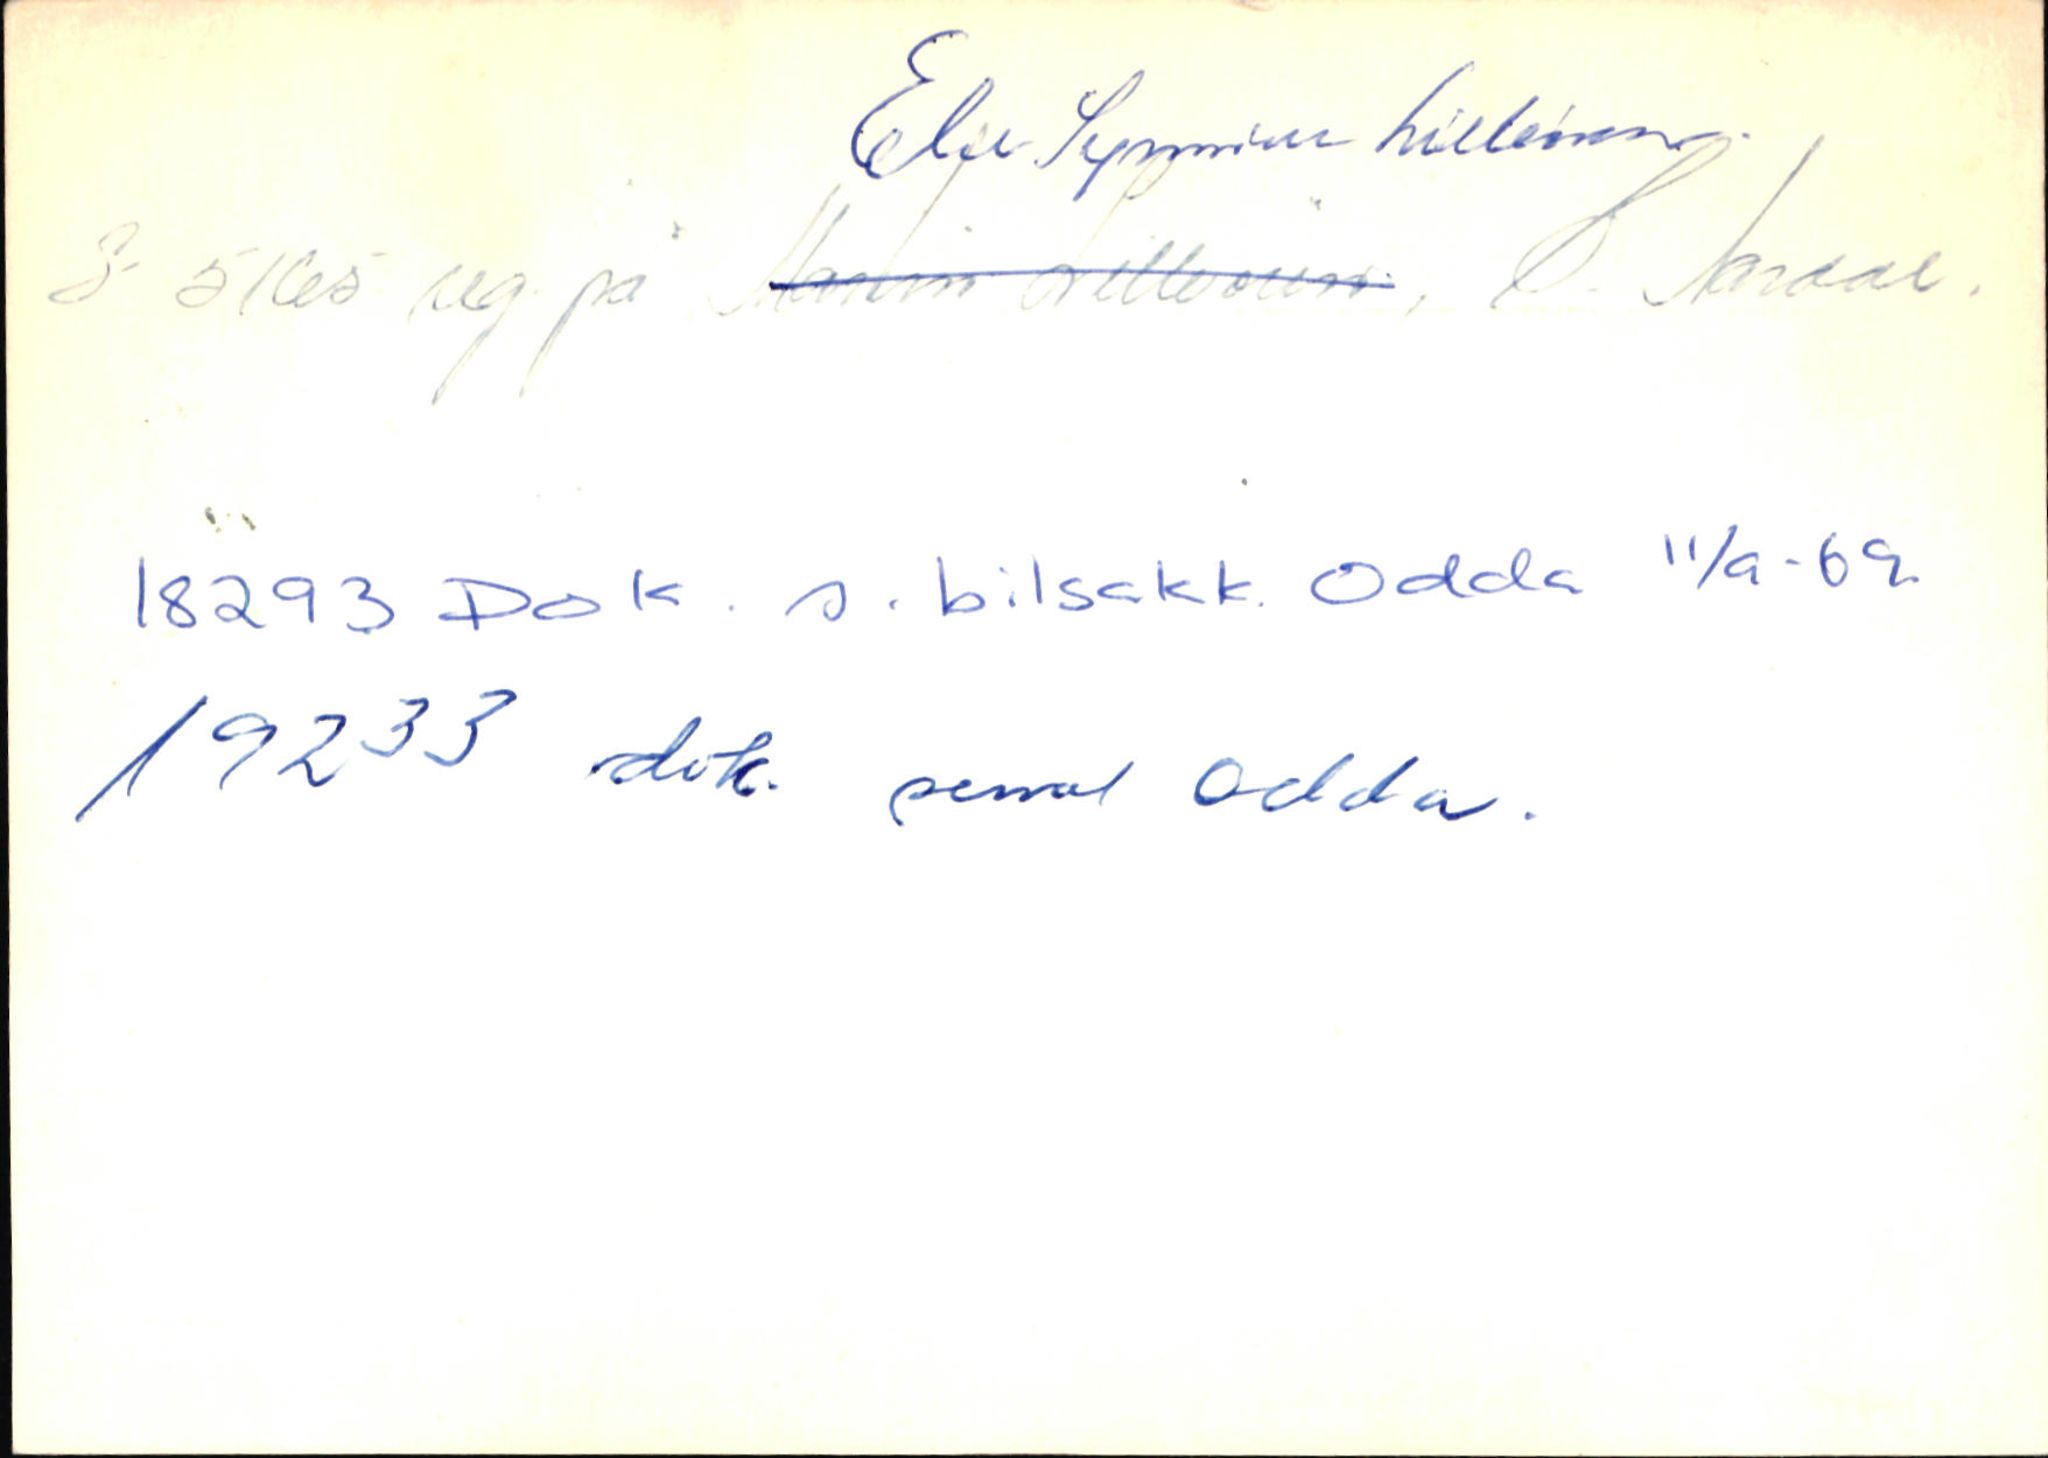 Else Synnøve Lillesund
S-5165 reg. på ~~Martin Lillesund~~, Ø. Årdal.
18293 Dok. s. bilsakk. Odda 11/9-69.
19233 dok. sendt Odda.